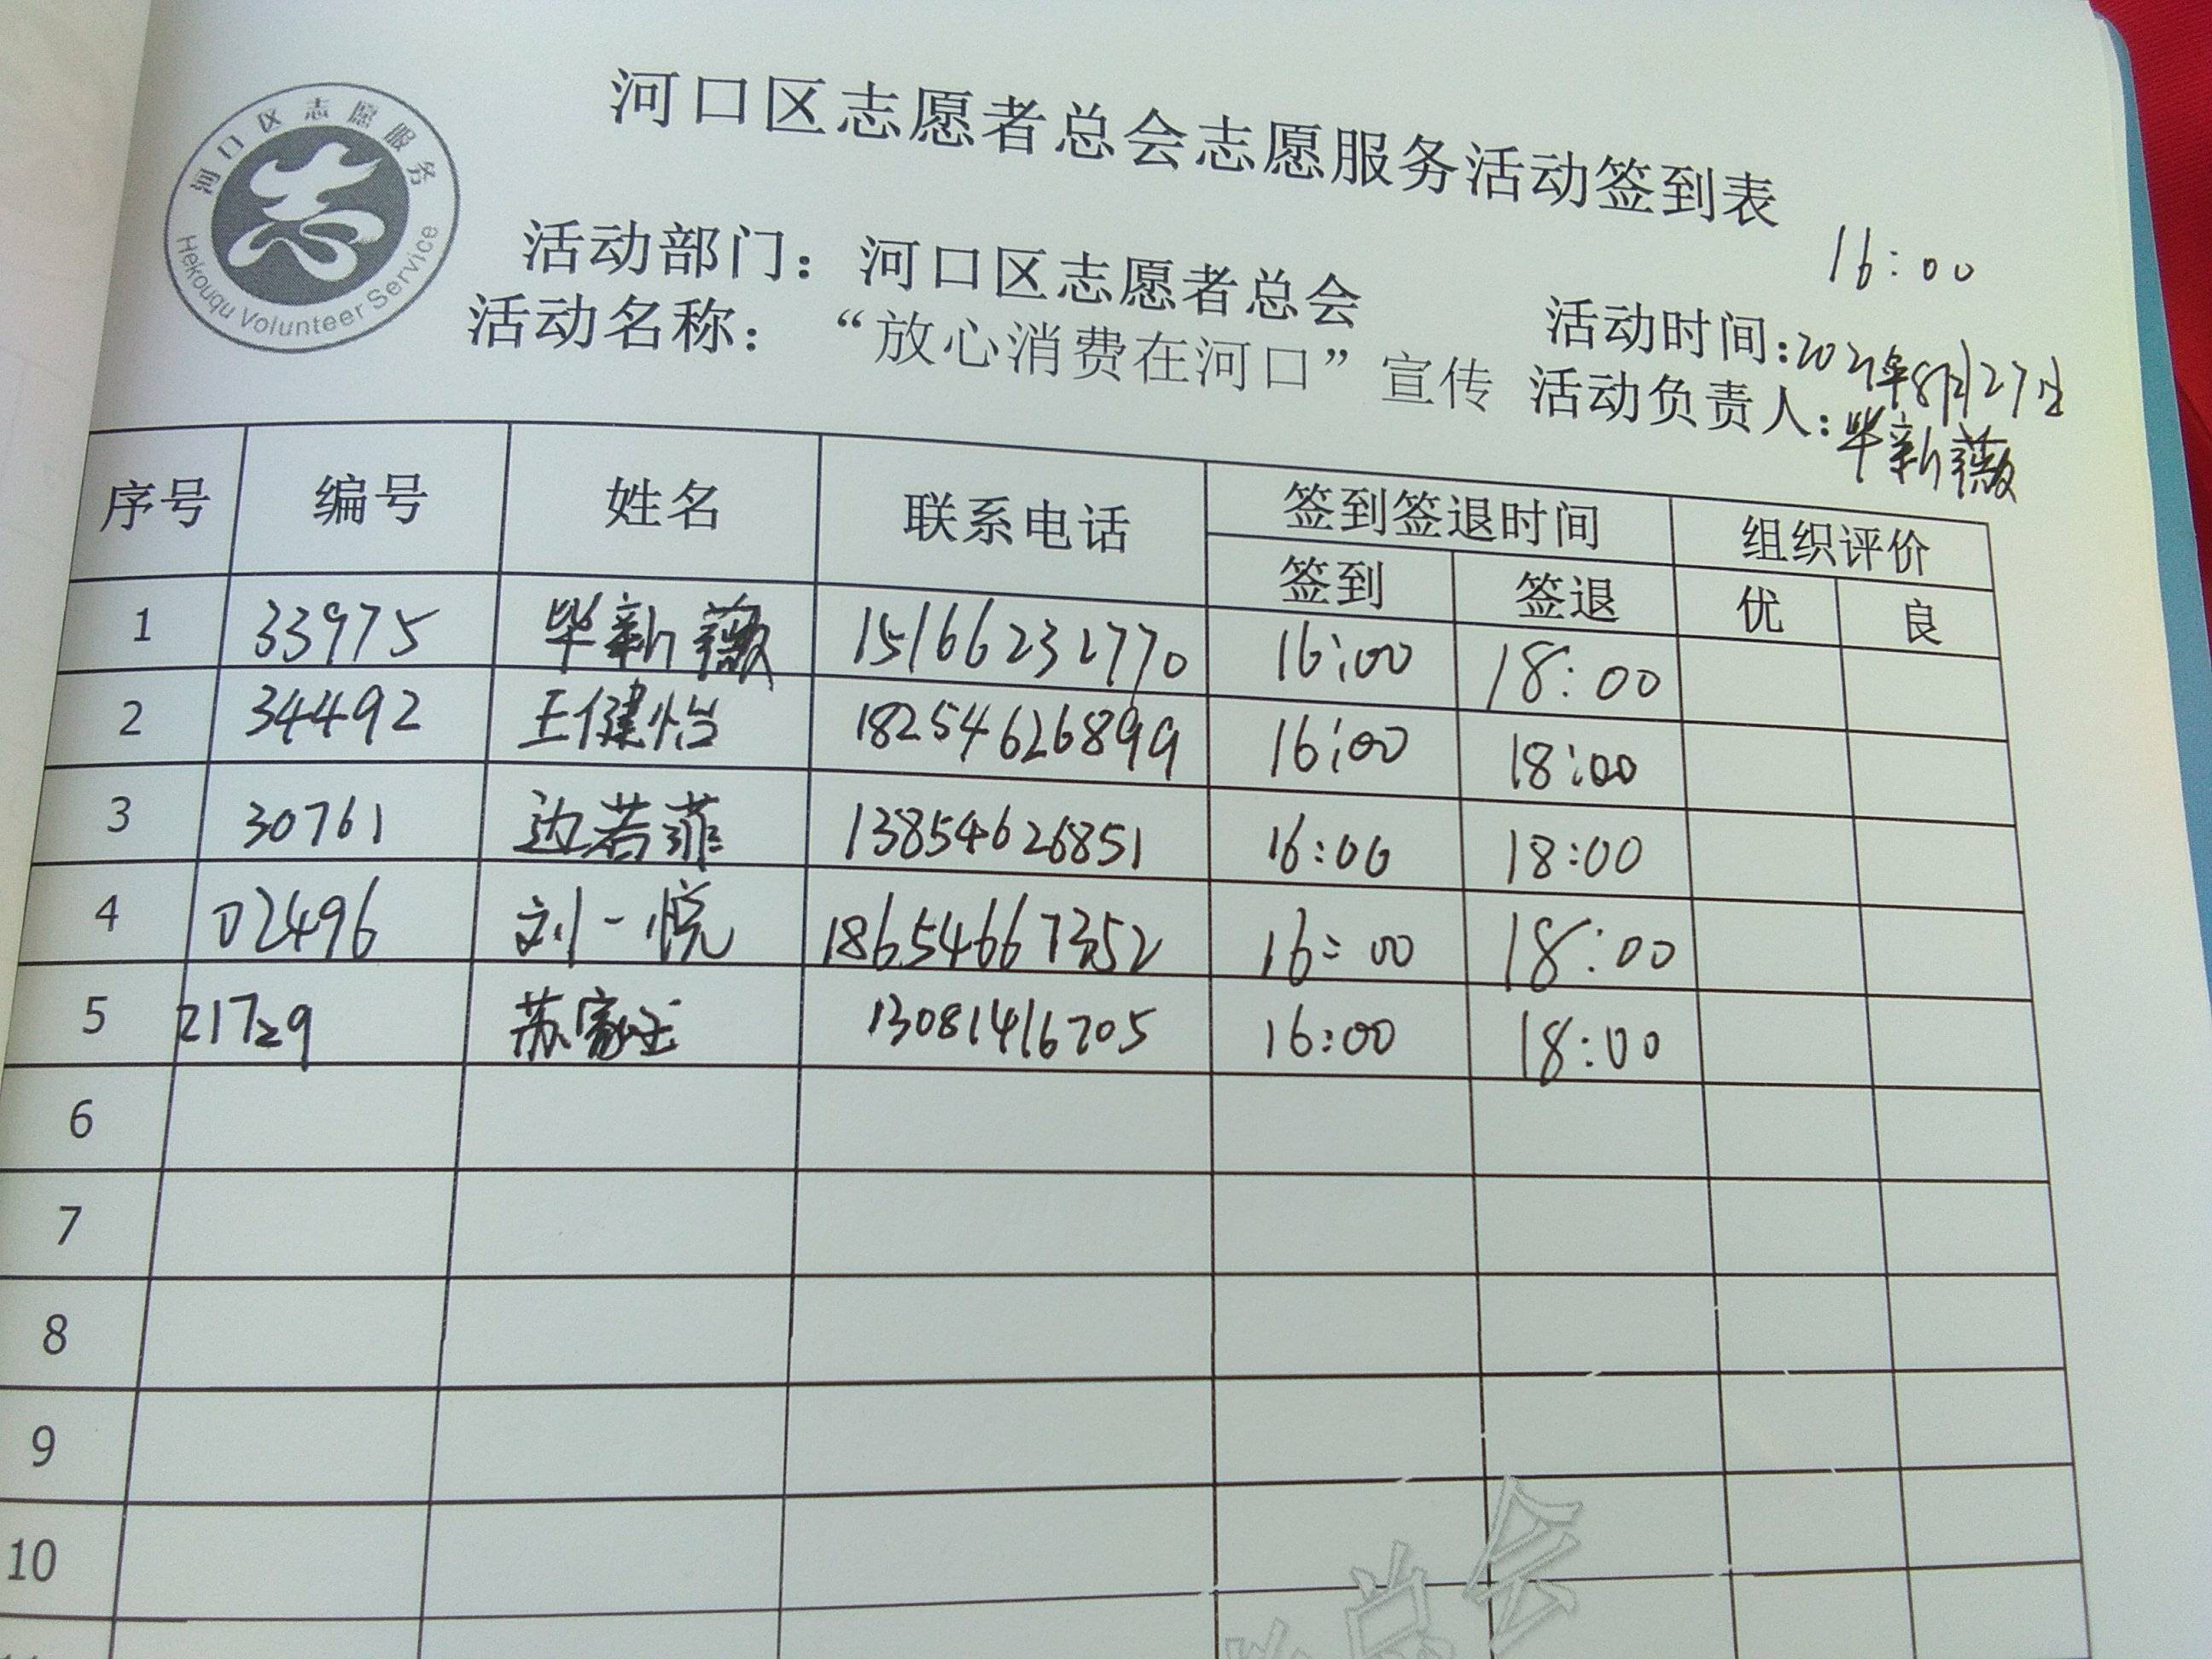 河口区志愿服务
Hekouqu Volunteer Service
河口区志愿者总会志愿服务活动签到表
16:00
活动部门：河口区志愿者总会 活动时间：2021年8月27日
活动名称：“放心消费在河口”宣传 活动负责人：毕新薇
序号 编号 姓名 联系电话 签到签退时间 组织评价
签到 签退 优 良
1 33975 毕新薇 15166232770 16:00 18:00
2 34492 王健怡 18254626899 16:00 18:00
3 30761 边若菲 13854626851 16:00 18:00
4 02496 刘一悦 18654667352 16:00 18:00
5 21729 苏家 13081416705 16:00 18:00
6
7
8
9
10
总会